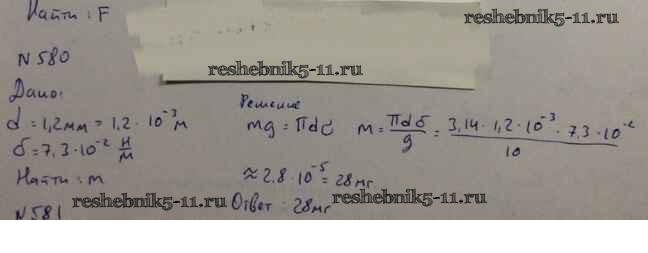 Найти: F
reshebnik5-11.ru
N 580
reshebnik5-11.ru
Дано:
d = 1,2 мм = 1,2 · 10⁻³ м
σ = 7,3 · 10⁻² Н/м
Найти: m
Решение
mg = πdσ m = πdσ/g = 3,14 · 1,2 · 10⁻³ · 7,3 · 10⁻²/10
≈ 2,8 · 10⁻⁵ = 28 мг
reshebnik5-11.ru
Ответ: 28 мг
reshebnik5-11.ru
N 581